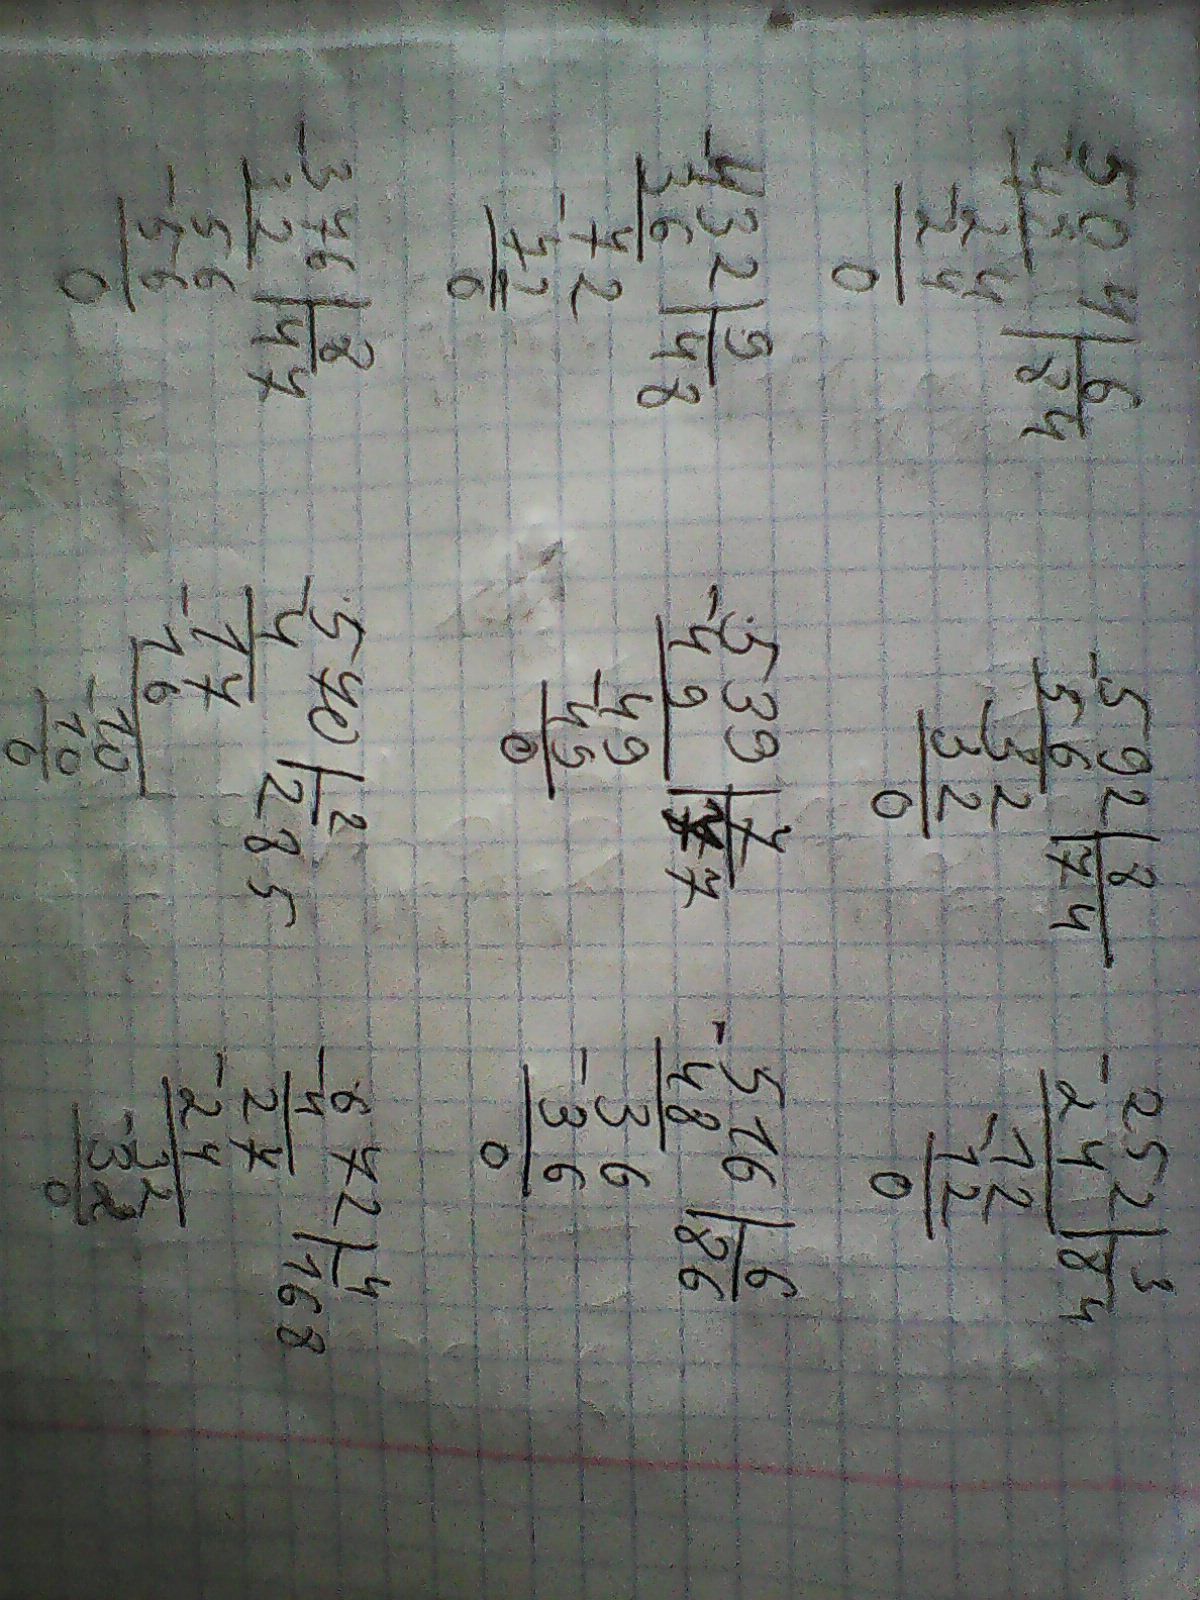 -504|6
48|84
-24
24
0
-592|8
56|74
-32
32
0
-252|3
24|84
-12
12
0
-432|9
36|48
-72
72
0
-539|7
49|77
-49
49
0
-516|6
48|86
-36
36
0
-376|8
32|47
-56
56
0
-570|2
4|285
-17
16
-10
10
0
-672|4
4|168
27
-24
-32
32
0